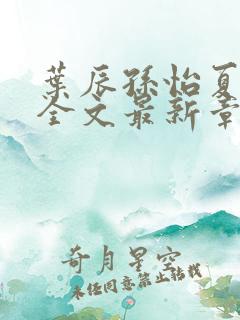 葉辰孫怡夏
全文最新章
奇月星空
未经同意禁止转载